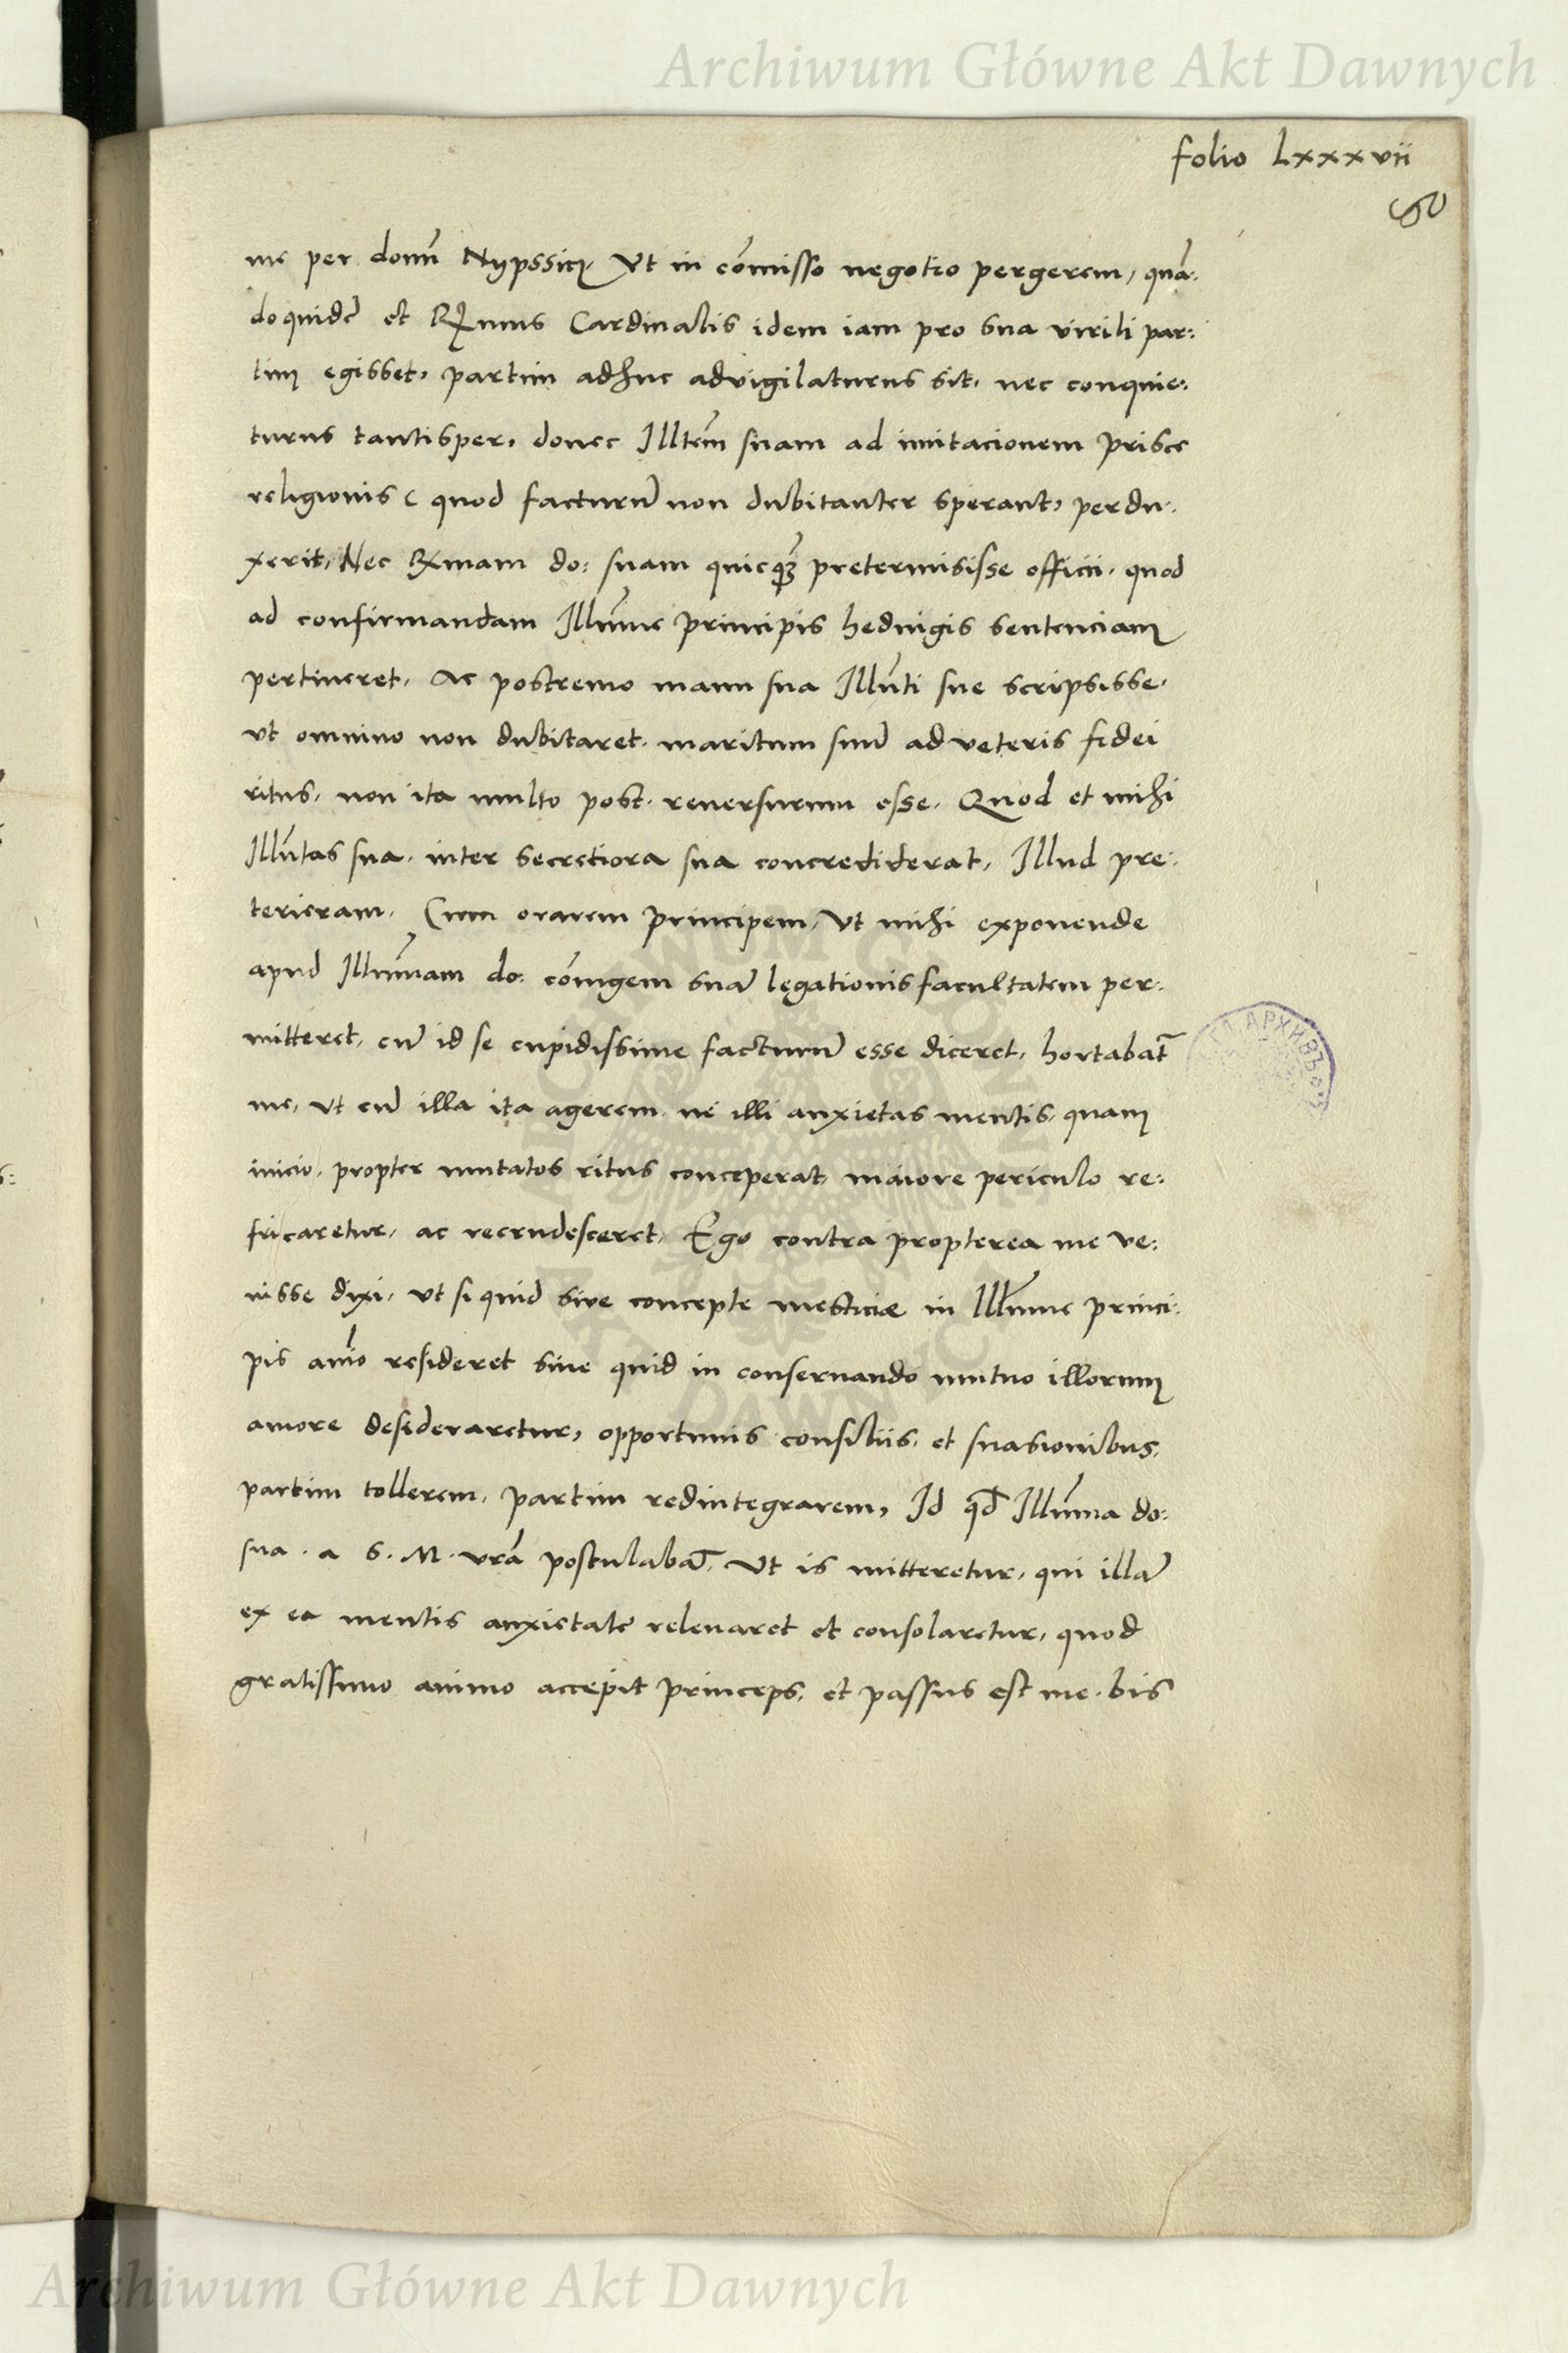 Archiwum Główne Akt Dawnych
folio Lxxxvii
me per donũ Nypssicz Vt in cõmisso negotio pergerem, quã:
doquidẽ et Rmus Cardinalis idem iam pro sua virili par:
tim egisset, partim adhuc advigilaturus sit, nec conquie:
turus tantisper, donec Illtem̃ suam ad imitacionem prisce
religionis ( quod facturũ non dubitanter sperant, perdu:
xerit, Nec Rmam do: suam quicq̃ pretermisisse officii, quod
ad confirmandam Illm̃e principis heduigis sentenciam
pertineret, Ac postremo manu sua Illm̃ti sue scripsisse,
vt omnino non dubitaret, maritum suũ ad veteris fidei
ritus, non ita multo post, reuersurum esse, Quod et mihi
Illm̃tas sua, inter secretiora sua concrediderat, Illud pre:
terieram, Cum orarem principem, Vt mihi exponende
apud Illm̃mam do: cõiugem suã legationis facultatem per:
mitteret, cũ id se cupidissime facturũ esse diceret, hortabat̃
me, vt cũ illa ita agerem, ne illi anxietas mentis, quam
inicio, propter mutatos ritus conceperat, maiore periculo re:
fricaretur, ac recrudesceret, Ego contra propterea me ve:
nisse dixi, vt si quid sive concepte mesticiae in Illm̃me princi:
pis anĩo resideret sine quid in conseruando mutuo illorum
amore desideraretur, opportunis consiliis, et suasionibus,
partim tollerem, partim redintegrarem, Id qđ Illm̃ma do:
sua . a S. M. vrã postulabat̃, Vt is mitteretur, qui illã
ex ea mentis anxietate releuaret et consolaretur, quod
gratissimo animo accepit princeps, et passus est me, bis
Archiwum Główne Akt Dawnych